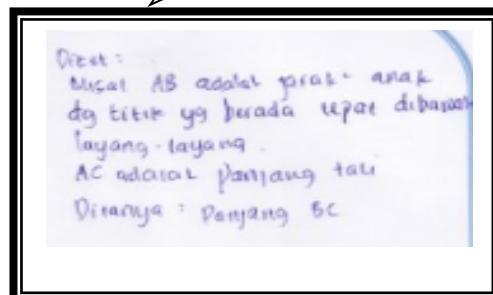 Diket :
Misal AB adalah jarak anak
dg titik yg berada tepat dibawah
layang-layang.
AC adalah Panjang tali
Ditanya : Panjang BC